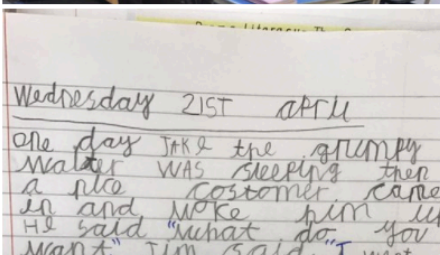 Wednesday 21ST april
one day JAKe the grumpy
walter WAS sleeping then
a nice costomer came
in and woke him up
He said "what do you
want" Jim said "I want